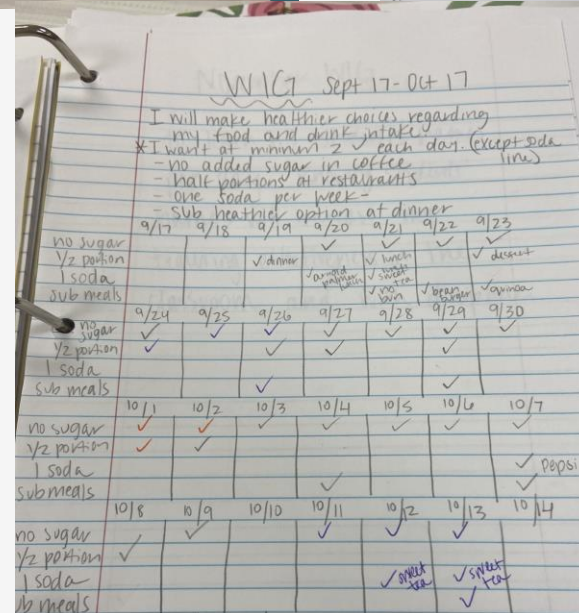 WIG Sept 17 - Oct 17
I will make healthier choices regarding
my food and drink intake.
*I want at minimum 2 ✓ each day. (except soda line)
- no added sugar in coffee
- half portions at restaurants
- one soda per week -
- sub heathier option at dinner
9/17 9/18 9/19 9/20 9/21 9/22 9/23
no sugar ✓ ✓ ✓ ✓
1/2 portion ✓ dinner ✓ lunch ✓ dessert
1 soda ✓ arnold palmer ✓ sweet tea
sub meals ✓ no bun ✓ bean burger ✓ quinoa
9/24 9/25 9/26 9/27 9/28 9/29 9/30
no sugar ✓ ✓ ✓ ✓ ✓ ✓ ✓
1/2 portion ✓ ✓ ✓ ✓
1 soda
sub meals ✓ ✓
10/1 10/2 10/3 10/4 10/5 10/6 10/7
no sugar ✓ ✓ ✓ ✓ ✓ ✓ ✓
1/2 portion ✓ ✓
1 soda ✓ Pepsi
sub meals ✓ ✓
10/8 10/9 10/10 10/11 10/12 10/13 10/14
no sugar ✓ ✓ ✓ ✓
1/2 portion ✓
1 soda ✓ sweet tea ✓ sweet tea
ub meals ✓